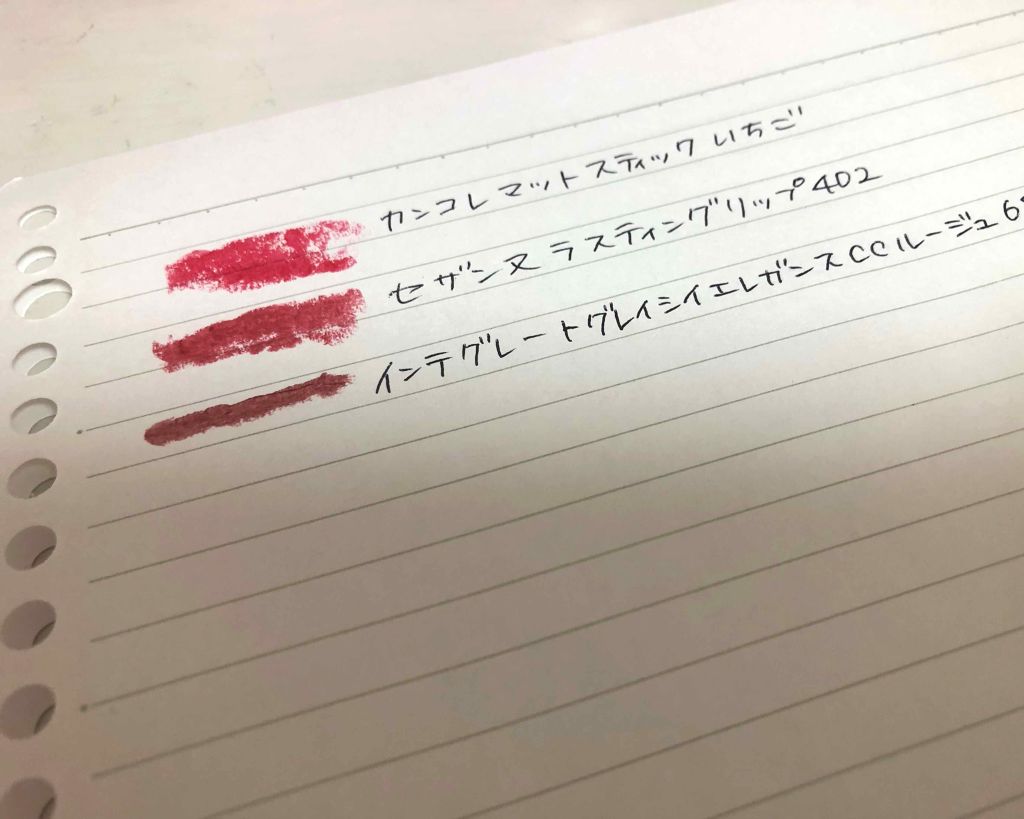 カンコレ マットスティック いちご
セザンヌ ラスティングリップ402
インテグレートグレイシイエレガンスCCルージュ